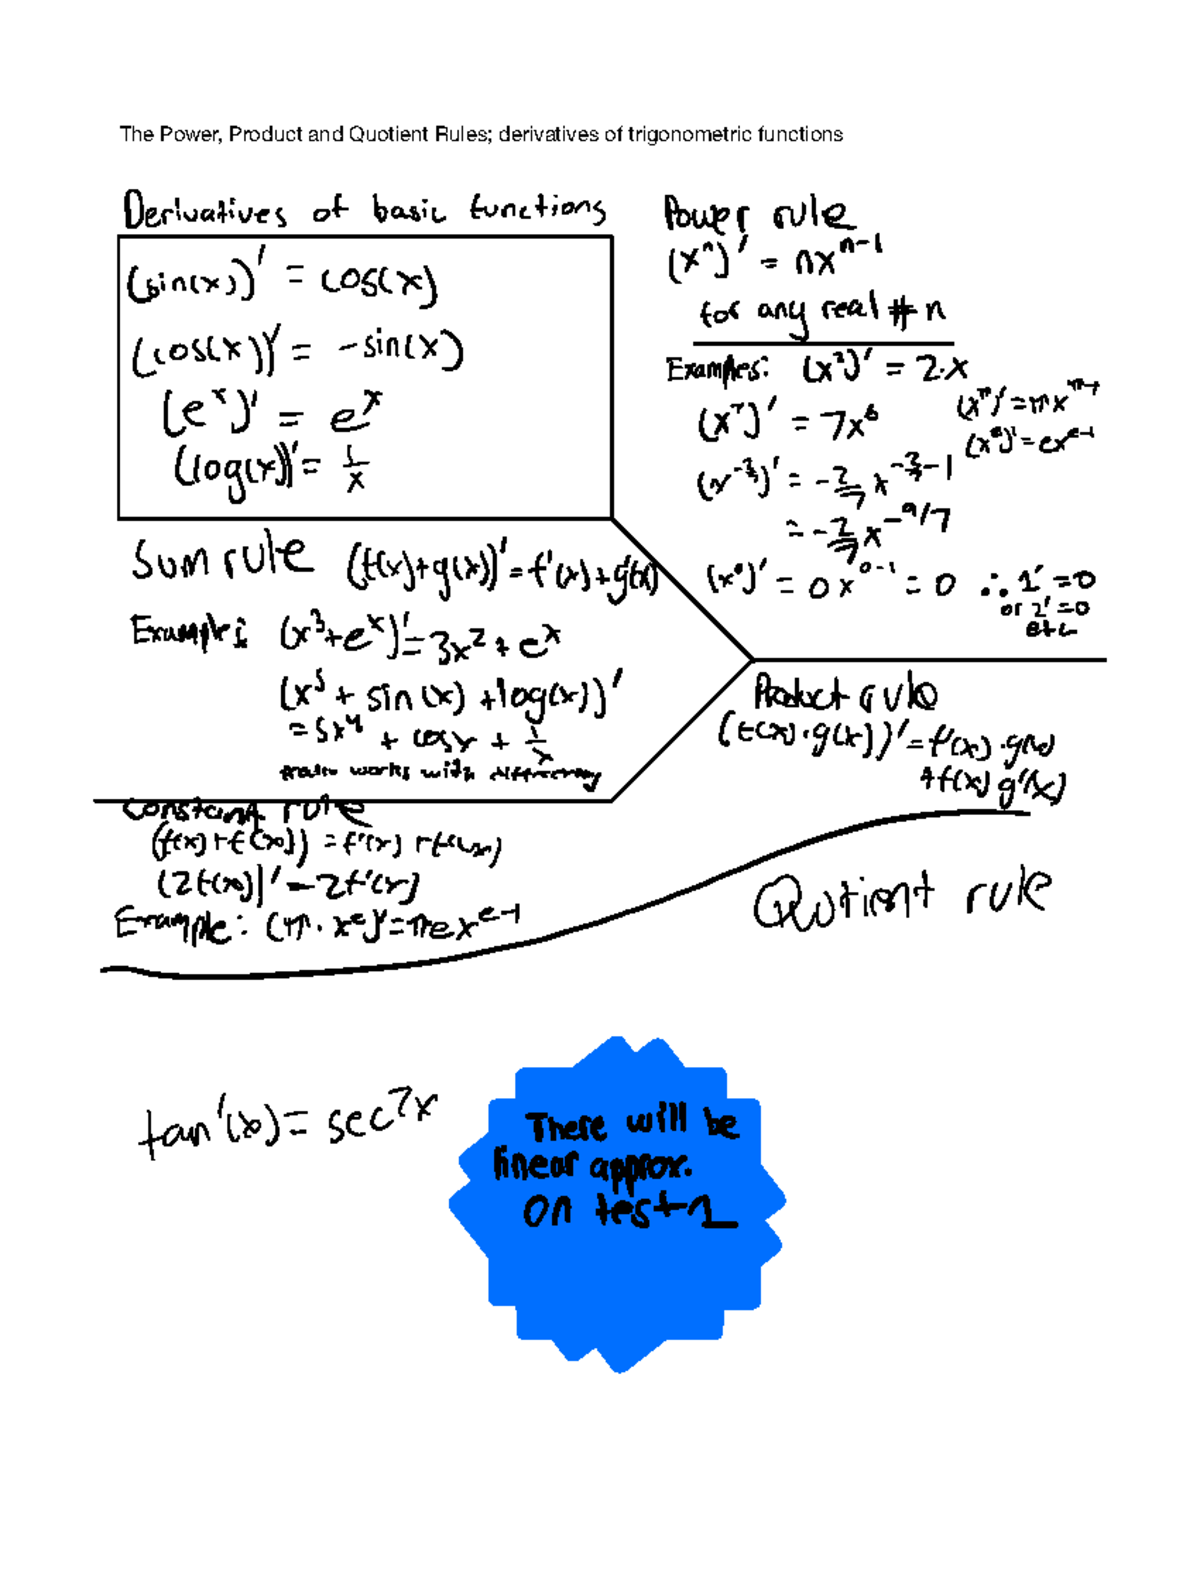 The Power, Product and Quotient Rules; derivatives of trigonometric functions
Derivatives of basic functions
(sin(x))' = cos(x)
(cos(x))' = -sin(x)
(eˣ)' = eˣ
(log(x))' = 1/x
Power rule
(xⁿ)' = nxⁿ⁻¹
for any real # n
Examples: (x²)' = 2·x
(x⁷)' = 7x⁶
(x^π)' = πx^(π-1)
(x^e)' = ex^(e-1)
(x^(-2/7))' = -2/7 x^(-2/7-1)
= -2/7 x^(-9/7)
(x⁰)' = 0x⁰⁻¹ = 0 ∴ 1' = 0
or 2' = 0
etc
Sum rule (f(x)+g(x))' = f'(x)+g'(x)
Examples: (x³+eˣ)' = 3x²+eˣ
(x⁵ + sin(x) + log(x))'
= 5x⁴ + cosx + 1/x
works with
Product rule
(f(x)·g(x))' = f'(x)·g(x)
+f(x)g'(x)
Constant rule
(f(x)+f(x)) = f'(x)+f'(x)
(2f(x))' = 2f'(x)
Example: (π·x^e)' = πex^(e-1)
Quotient rule
tan'(x) = sec²x
There will be
linear approx.
on test 1